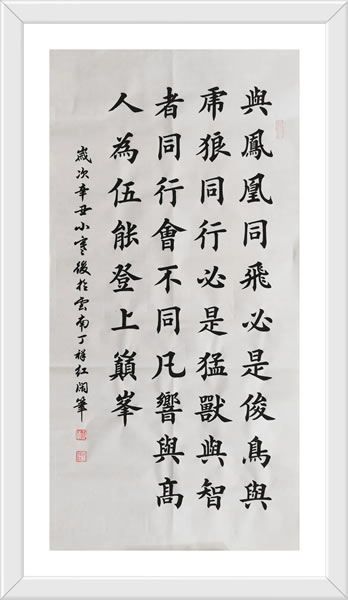 與鳳凰同飛必是俊鳥與
虎狼同行必是猛獸與智
者同行會不同凡響與高
人為伍能登上巔峯
歲次辛丑小寒後於雲南丁祥紅闊筆